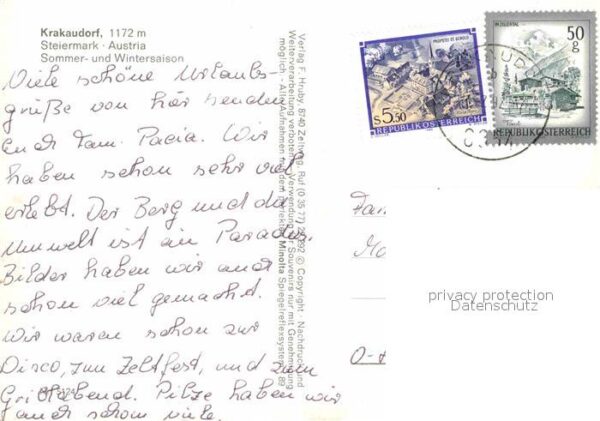 Krakaudorf, 1172 m
Steiermark · Austria
Sommer- und Wintersaison
Viele schöne Urlaubs-
grüße von hier senden
euch Fam. Pacia. Wir
haben schon sehr viel
erlebt. Der Berg und die
Umwelt ist ein Paradis.
Bilder haben wir auch
schon viel gemacht.
Wir waren schon zur
Disco, zum Zeltfest, und zum
Grillabend. Pilze haben wir
auch schon viele.
Verlag F. Hruby, 8740 Zeltweg, Ruf (0 35 77) © Copyright · Nachdruck und
Weiterverarbeitung verboten. Verwendung für Souvenirs nur mit Genehmigung
möglich · Alle Aufnahmen mit dem Minolta Spiegelreflexsystem
S 5.50
REPUBLIK ÖSTERREICH
IM ZILLERTAL
50
g
REPUBLIK ÖSTERREICH
Fam
O-
privacy protection
Datenschutz